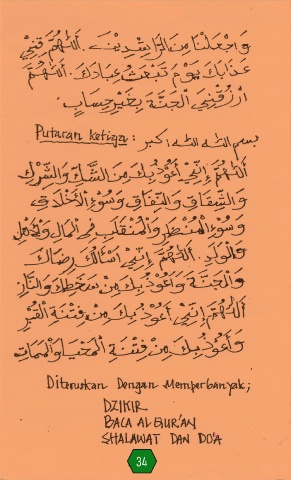 وَاجْعَلْنَا مِنَ الرَّاشِدِيْنَ. اَللّٰهُمَّ قِنِيْ
عَذَابَكَ يَوْمَ تَبْعَثُ عِبَادَكَ. اَللّٰهُمَّ
ارْزُقْنِيَ الْجَنَّةَ بِغَيْرِ حِسَابٍ.
Putaran ketiga: بسم الله الله اكبر
اَللّٰهُمَّ اِنِّيْ اَعُوْذُبِكَ مِنَ الشَّكِّ وَالشِّرْكِ
وَالشِّقَاقِ وَالنِّفَاقِ وَسُوْءِ الْأَخْلَاقِ
وَسُوْءِ الْمُنْظَرِ وَالْمُنْقَلَبِ فِى الْمَالِ وَالْأَهْلِ
وَالْوَلَدِ. اَللّٰهُمَّ اِنِّيْ اَسْأَلُكَ رِضَاكَ
وَالْجَنَّةَ وَاَعُوْذُبِكَ مِنْ سَخَطِكَ وَالنَّارِ
اَللّٰهُمَّ اِنِّيْ اَعُوْذُبِكَ مِنْ فِتْنَةِ الْقَبْرِ
وَاَعُوْذُبِكَ مِنْ فِتْنَةِ الْمَحْيَا وَالْمَمَاتِ
Diteruskan Dengan Memperbanyak;
DZIKIR
BACA ALQUR'AN
SHALAWAT DAN DO'A
34